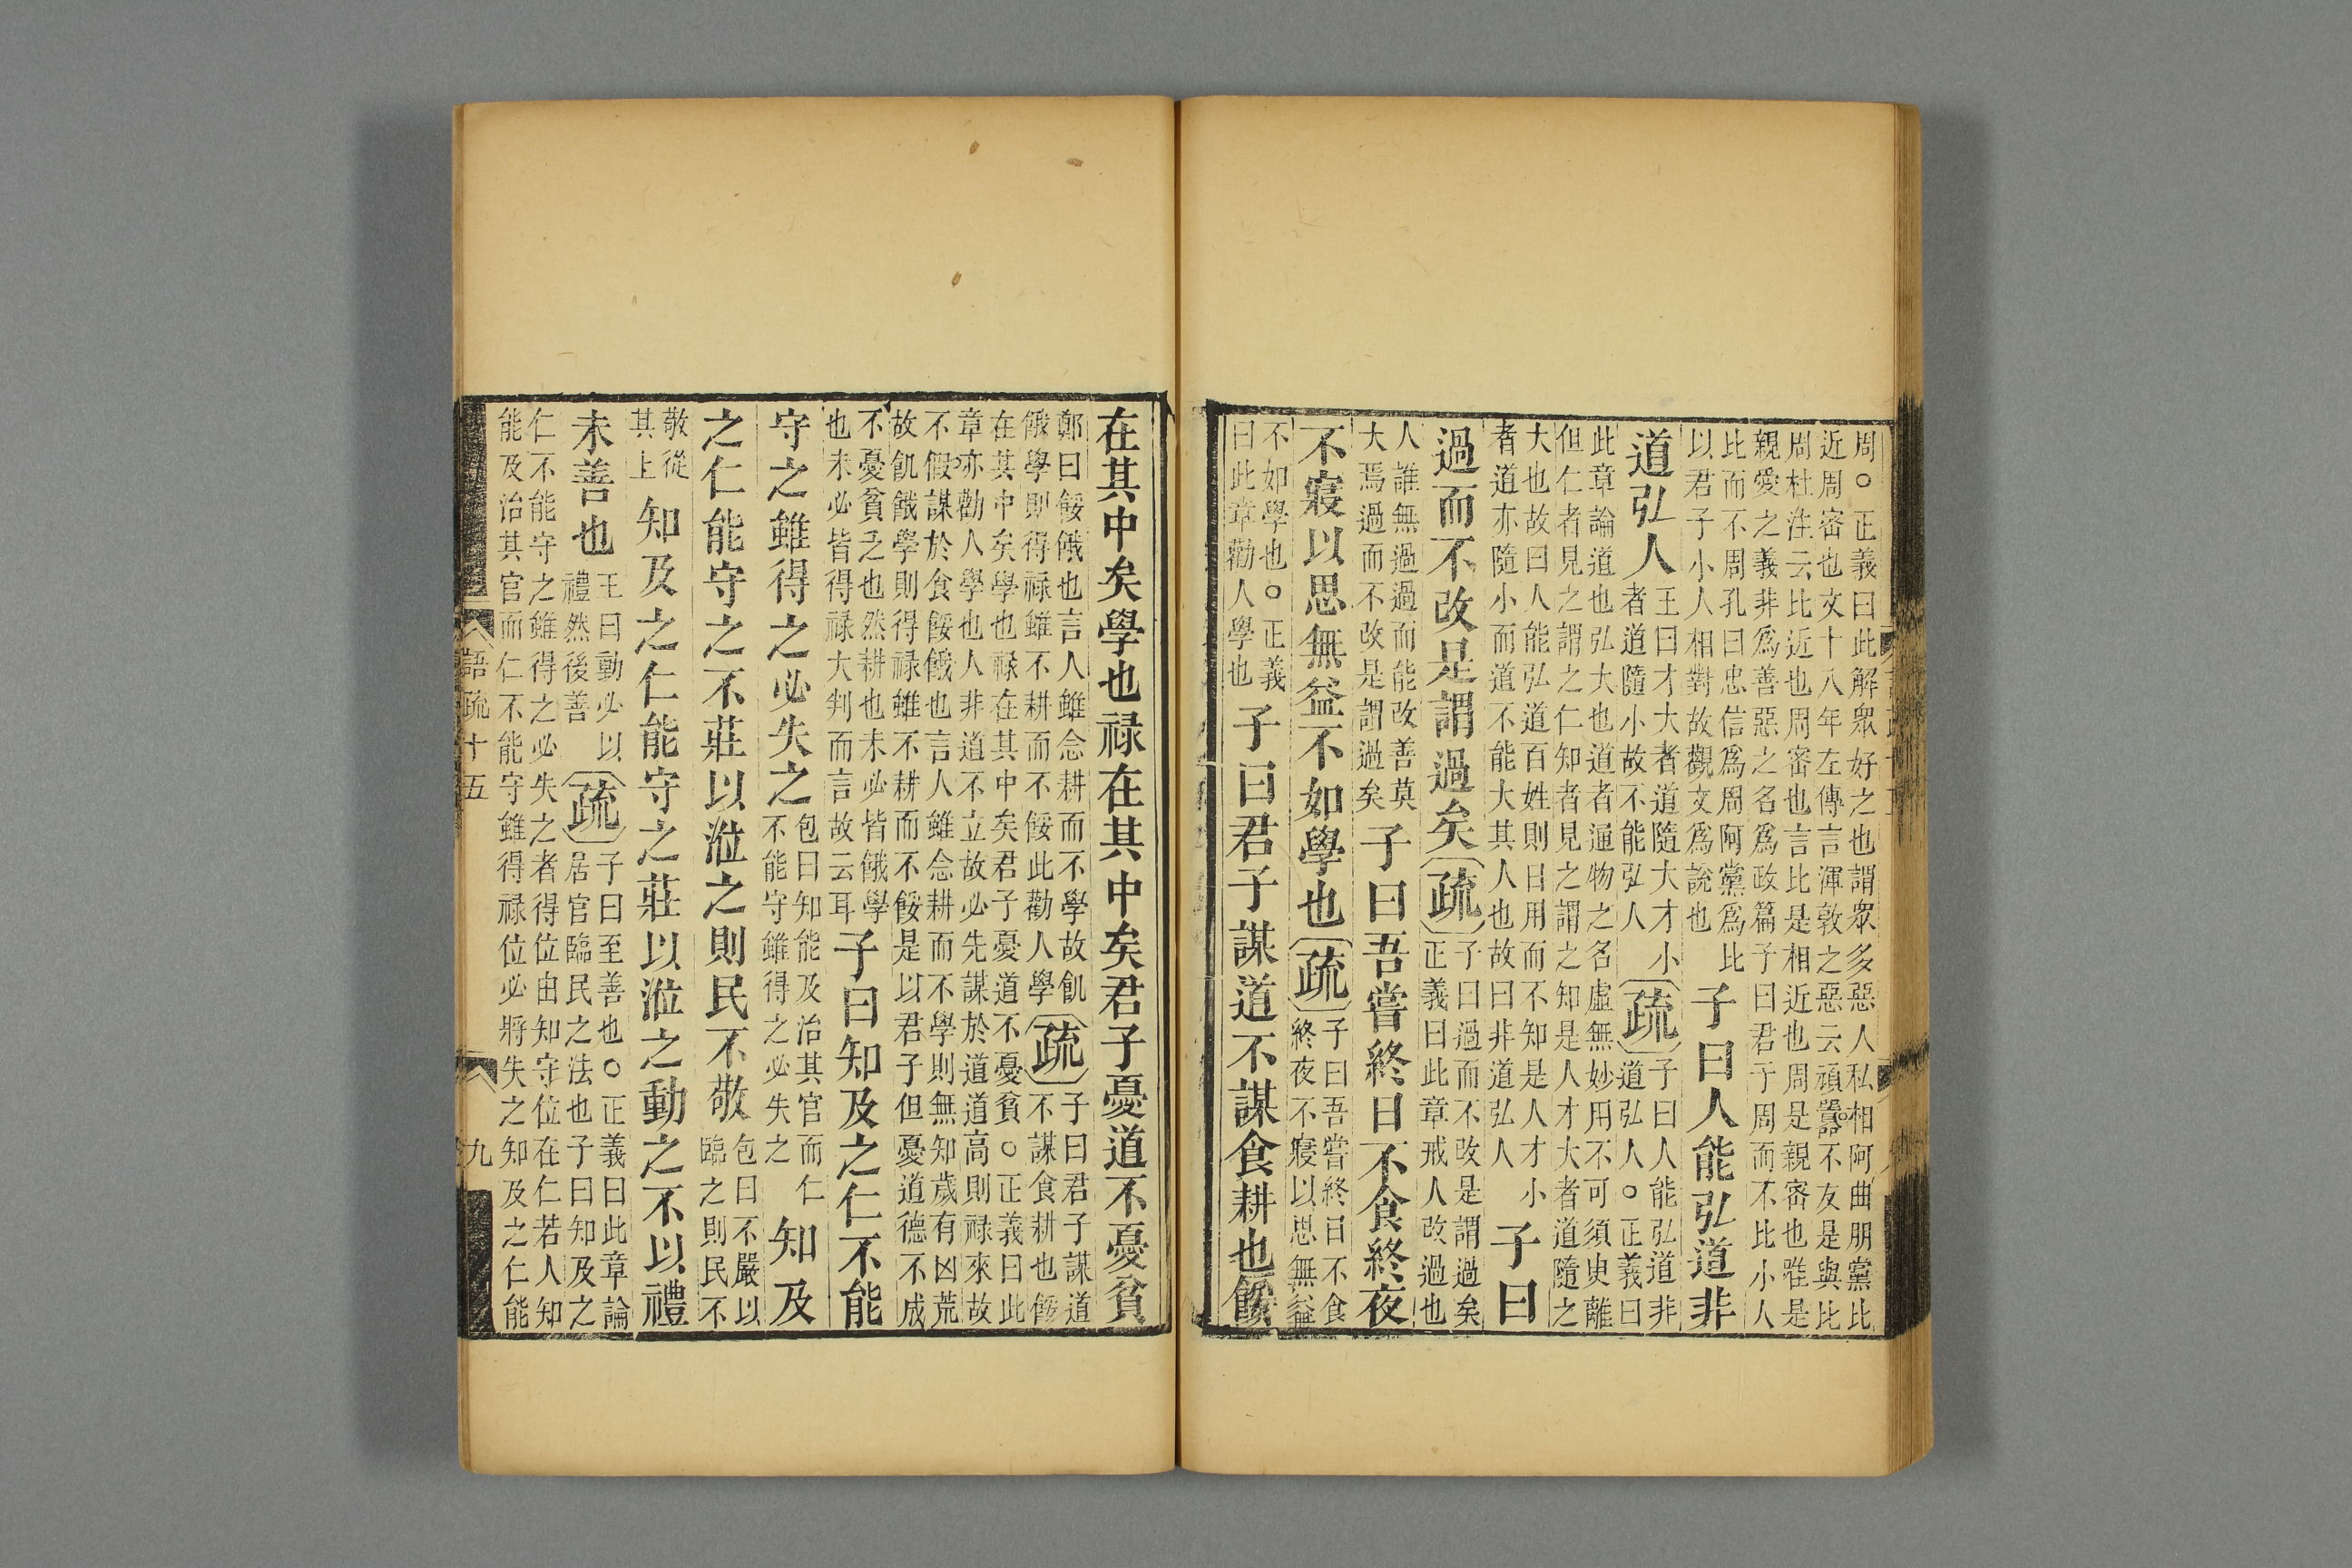 周○正義曰此解眾好之也謂眾多惡人私相阿曲朋黨比
近周密也文十八年左傳言渾敦之惡云頑嚚不友是與比
周杜注云比近也周密也言比是相近也周是親密也唯是
親愛之義非爲善惡之名爲政篇子曰君子周而不比小人
此而不周孔曰忠信爲周阿黨爲比
以君子小人相對故觀文爲說也
子曰人能弘道非
道弘人
王曰才大者道隨大才小
者道隨小故不能弘人
疏
子曰人能弘道非
道弘人○正義曰
此章論道也弘大也道者通物之名虛無妙用不可須臾離
但仁者見之謂之仁知者見之謂之知是人才大者道隨之
大也故曰人能弘道百姓則日用而不知是人才小
者道亦隨小而道不能大其人也故曰非道弘人
子曰
過而不改是謂過矣
疏
子曰過而不改是謂過矣
正義曰此章戒人改過也
人誰無過過而能改善莫
大焉過而不改是謂過矣
子曰吾嘗終日不食終夜
不寢以思無益不如學也
疏
子曰吾嘗終日不食
終夜不寢以思無益
不如學也○正義
曰此章勸人學也
子曰君子謀道不謀食耕也餒
在其中矣學也祿在其中矣君子憂道不憂貧
鄭曰餒餓也言人雖念耕而不學故飢
餓學則得祿雖不耕而不餒此勸人學
疏
子曰君子謀道
不謀食耕也餒
在其中矣學也祿在其中矣君子憂道不憂貧○正義曰此
章亦勸人學也人非道不立故必先謀於道道高則祿來故
不假謀於食餒餓也言人雖念耕而不學則無知歲有凶荒
故飢餓學則得祿雖不耕而不餒是以君子但憂道德不成
不憂貧乏也然耕也未必皆餓學
也未必皆得祿大判而言故云耳
子曰知及之仁不能
守之雖得之必失之
包曰知能及治其官而仁
不能守雖得之必失之
知及
之仁能守之不莊以涖之則民不敬
包曰不嚴以
臨之則民不
敬從
其上
知及之仁能守之莊以涖之動之不以禮
未善也
王曰動必以
禮然後善
疏
子曰至善也○正義曰此章論
居官臨民之法也子曰知及之
仁不能守之雖得之必失之者得位由知守位在仁若人知
能及治其官而仁不能守雖得祿位必將失之知及之仁能
語疏十五
九